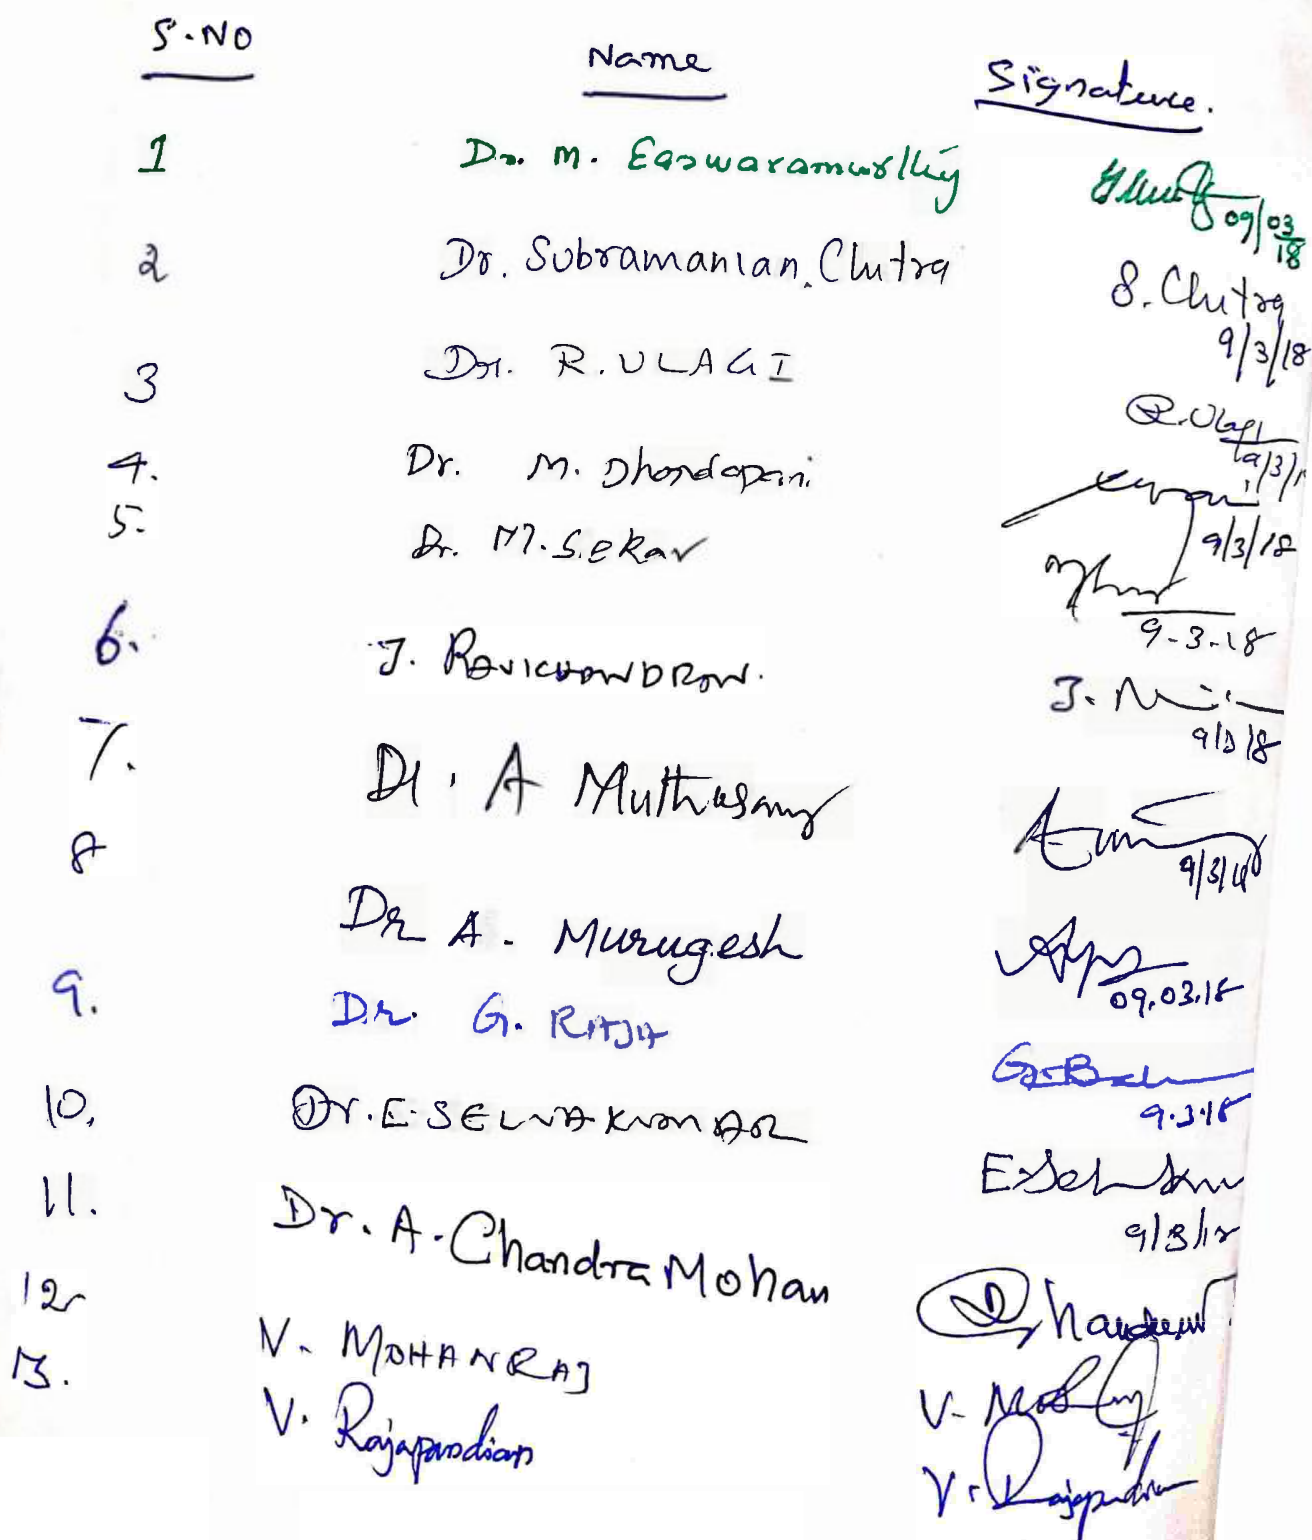 S.NO Name Signature.
1 Dr. M. Easwaramurthy 09/03/18
2 Dr. Subramanian. Chitra S. Chitra
9/3/18
3 Dr. R. ULAGI R. Ulagi
4. Dr. M. Dhandapani
9/3/18
5. Dr. M. Sekar
9-3-18
6. J. RAVICHANDRAN. J.
9/3/18
7. Dr. A Muthusamy
9/3/18
8 Dr A. Murugesh
09.03.18
9. Dr. G. RAJA
9.3.18
10. Dr. E. SELVAKUMAR
9/3/18
11. Dr. A. Chandra Mohan
12 V. MOHANRAJ V.
13. V. Rajapandian V. Rajapandian